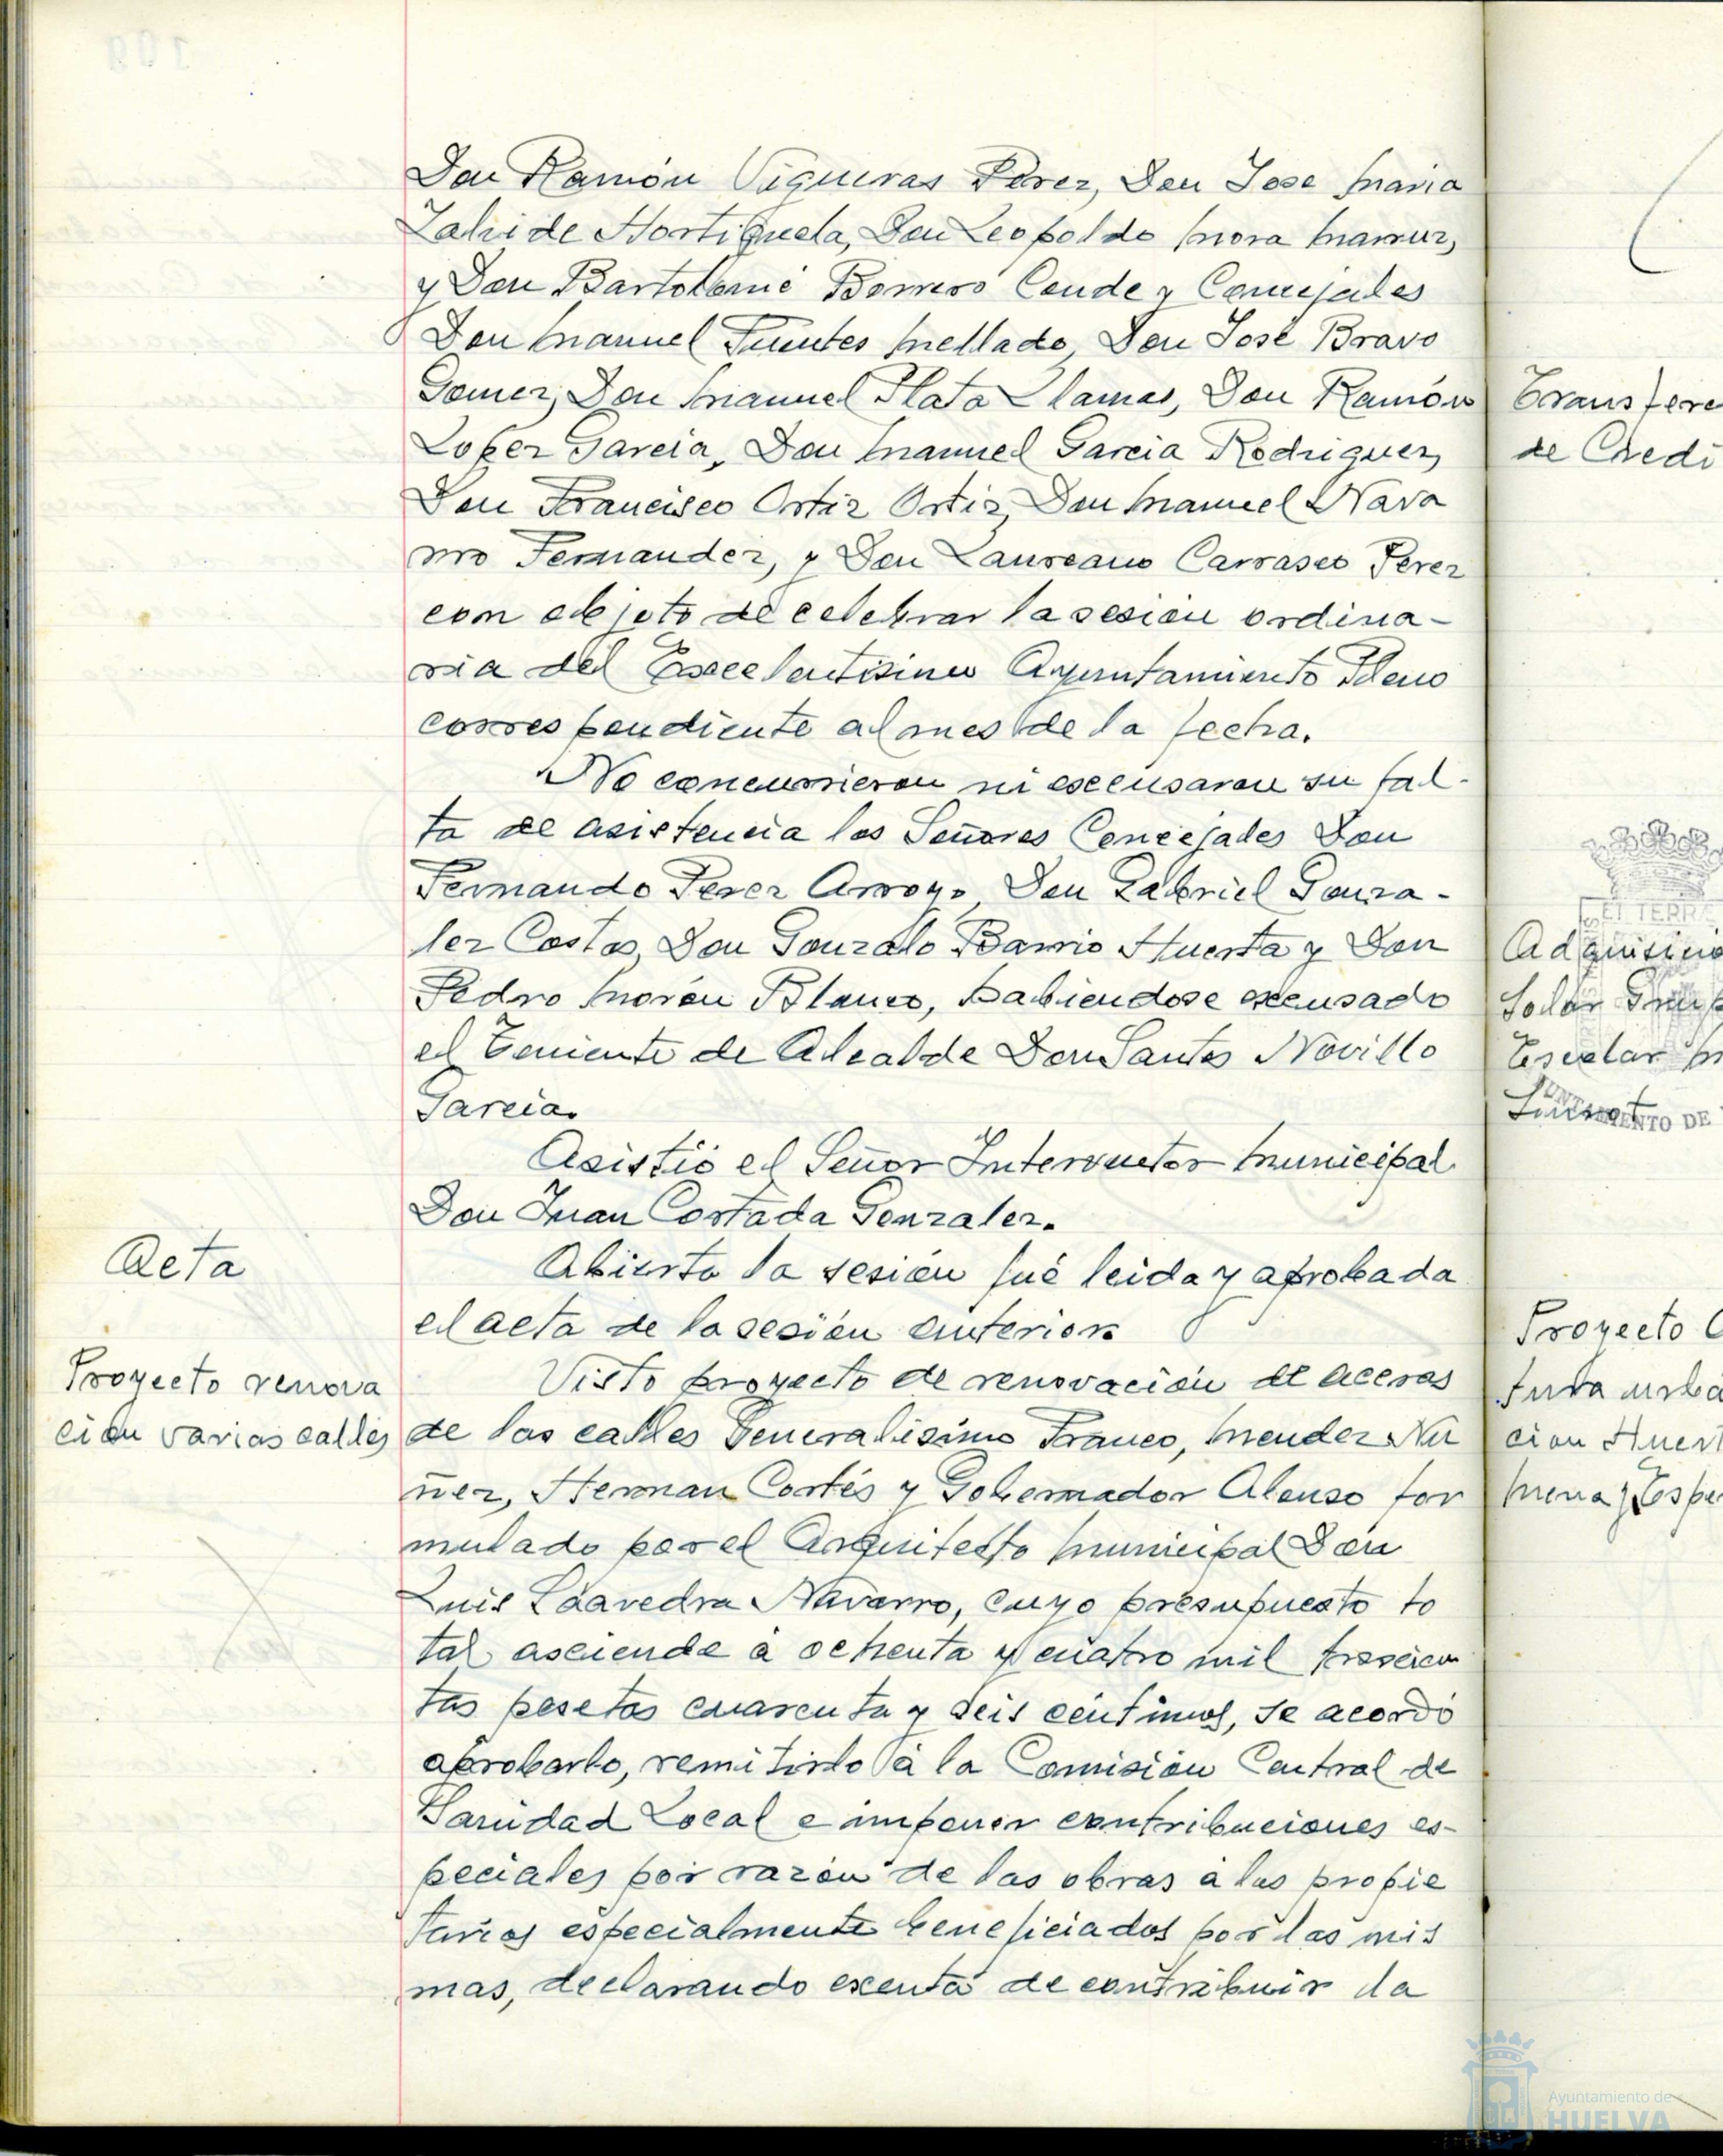 Don Ramón Vigueras Perez, Don Jose Maria
Zalvide Hortiguela, Don Leopoldo Mora
y Don Bartolomé Borrero Conde y Concejales
Don Manuel Fuentes Mellado, Don José Bravo
Gomez, Don Manuel Plata Llamas, Don Ramón
Lopez Garcia, Don Manuel Garcia Rodriguez,
Don Francisco Ortiz Ortiz, Don Manuel Nava
rro Fernandez, y Don Laureano Carrasco Perez
con objeto de celebrar la sesión ordina-
ria del Excelentisimo Ayuntamiento Pleno
correspondiente al mes de la fecha.
No concurrieron ni escusaron su fal-
ta de asistencia los Señores Concejales Don
Fernando Perez Arroyo, Don Gabriel Gonza-
lez Costas, Don Gonzalo Barrio Huerta y Don
Pedro Morón Blanco, habiendose excusado
el Teniente de Alcalde Don Santos Novillo
Garcia.
Asistió el Señor Interventor Municipal
Don Juan Costada Gonzalez.
Acta
Abierta la sesión fué leida y aprobada
el acta de la sesión anterior.
Proyecto renova
ción varias calles
Visto proyecto de renovación de aceras
de las calles Generalisimo Franco, Mendez Nu
ñez, Hernan Cortés y Gobernador Alonso for
mulado por el Arquitecto Municipal Don
Luis Saavedra Navarro, cuyo presupuesto to
tal asciende a ochenta y cuatro mil trescien
tas pesetas cuarenta y seis céntimos, se acordó
aprobarlo, remitirlo a la Comisión Central de
Sanidad Local e imponer contribuciones es-
peciales por razón de las obras a los propie
tarios especialmente beneficiados por las mis
mas, declarando exenta de contribuir la
Transfere
de Credi
EL TERRA
Adquisicio
Solar Grup
Escolar
UNTAMIENTO DE
Proyecto
tura urba
cion Huert
Mena y Espe
Ayuntamiento de
HUELVA